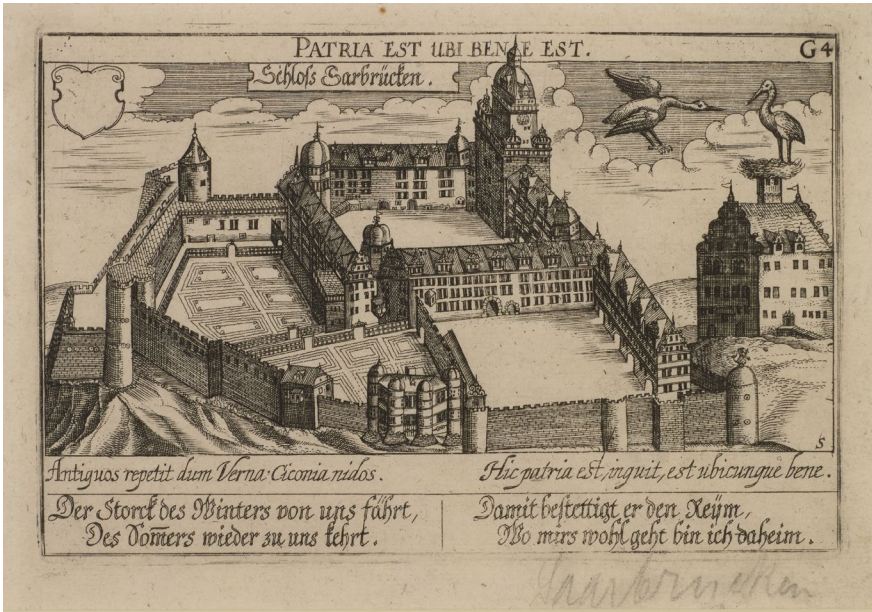 PATRIA EST UBI BENE EST.
G4
Schloſs Sarbrücken.
S
Antiquos repetit dum Verna Ciconia nidos.
Hic patria est, inquit, est ubicunque bene.
Der Storck des Winters von uns fährt,
Des Som̄ers wieder zu uns kehrt.
Damit bestettigt er den Reÿm,
Wo mirs wohl geht bin ich daheim.
Saarbrücken